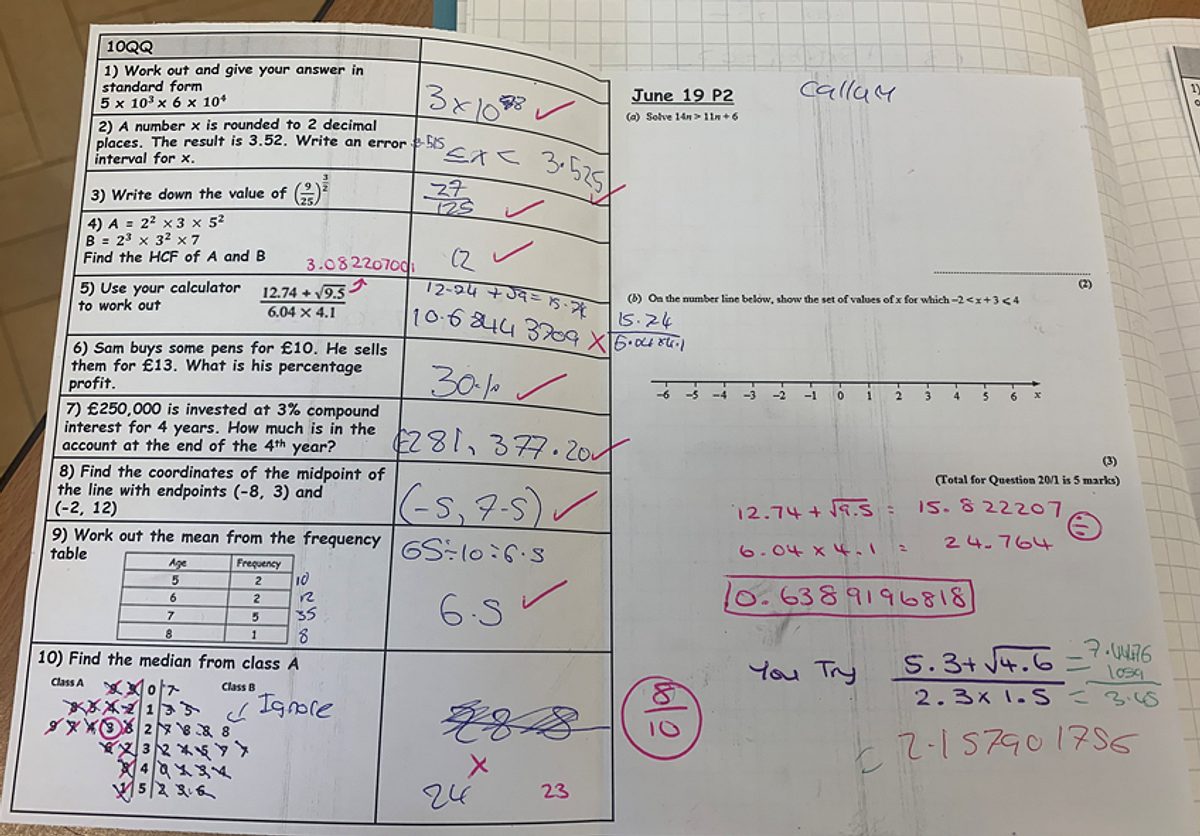 10QQ
1) Work out and give your answer in
standard form
5 x 10³ x 6 x 10⁴
3 x 10 8
2) A number x is rounded to 2 decimal
places. The result is 3.52. Write an error
interval for x.
3.515 ≤ x < 3.525
3) Write down the value of (9/25)^3/2
27/125
4) A = 2² x 3 x 5²
B = 2³ x 3² x 7
Find the HCF of A and B
12
3.082207001
5) Use your calculator
to work out
12.74 + √9.5
6.04 × 4.1
12.24 + √9 = 15.74
10.68443709
15.24
6.04 x 4.1
6) Sam buys some pens for £10. He sells
them for £13. What is his percentage
profit.
30%
7) £250,000 is invested at 3% compound
interest for 4 years. How much is in the
account at the end of the 4th year?
£281,377.20
8) Find the coordinates of the midpoint of
the line with endpoints (-8, 3) and
(-2, 12)
(-5, 7.5)
9) Work out the mean from the frequency
table
65÷10=6.5
6.5
Age Frequency
5 2 10
6 2 12
7 5 35
8 1 8
10) Find the median from class A
Class A Class B
Ignore
9 9 0 7
8 3 4 2 1 3 5
9 7 4 3 3 2 7 8 8 8
6 2 3 2 4 5 7 7
8 4 0 1 3 4
1 5 2 3 6
24
23
June 19 P2
Callum
(a) Solve 14n > 11n + 6
(2)
(b) On the number line below, show the set of values of x for which −2 < x + 3 ⩽ 4
-6 -5 -4 -3 -2 -1 0 1 2 3 4 5 6 x
(3)
(Total for Question 20/1 is 5 marks)
12.74 + √9.5 = 15.822207
6.04 x 4.1 = 24.764
0.6389196818
You Try
5.3 + √4.6
2.3 x 1.5
= 7.4476
1059
= 3.45
= 2.157901756
8
10